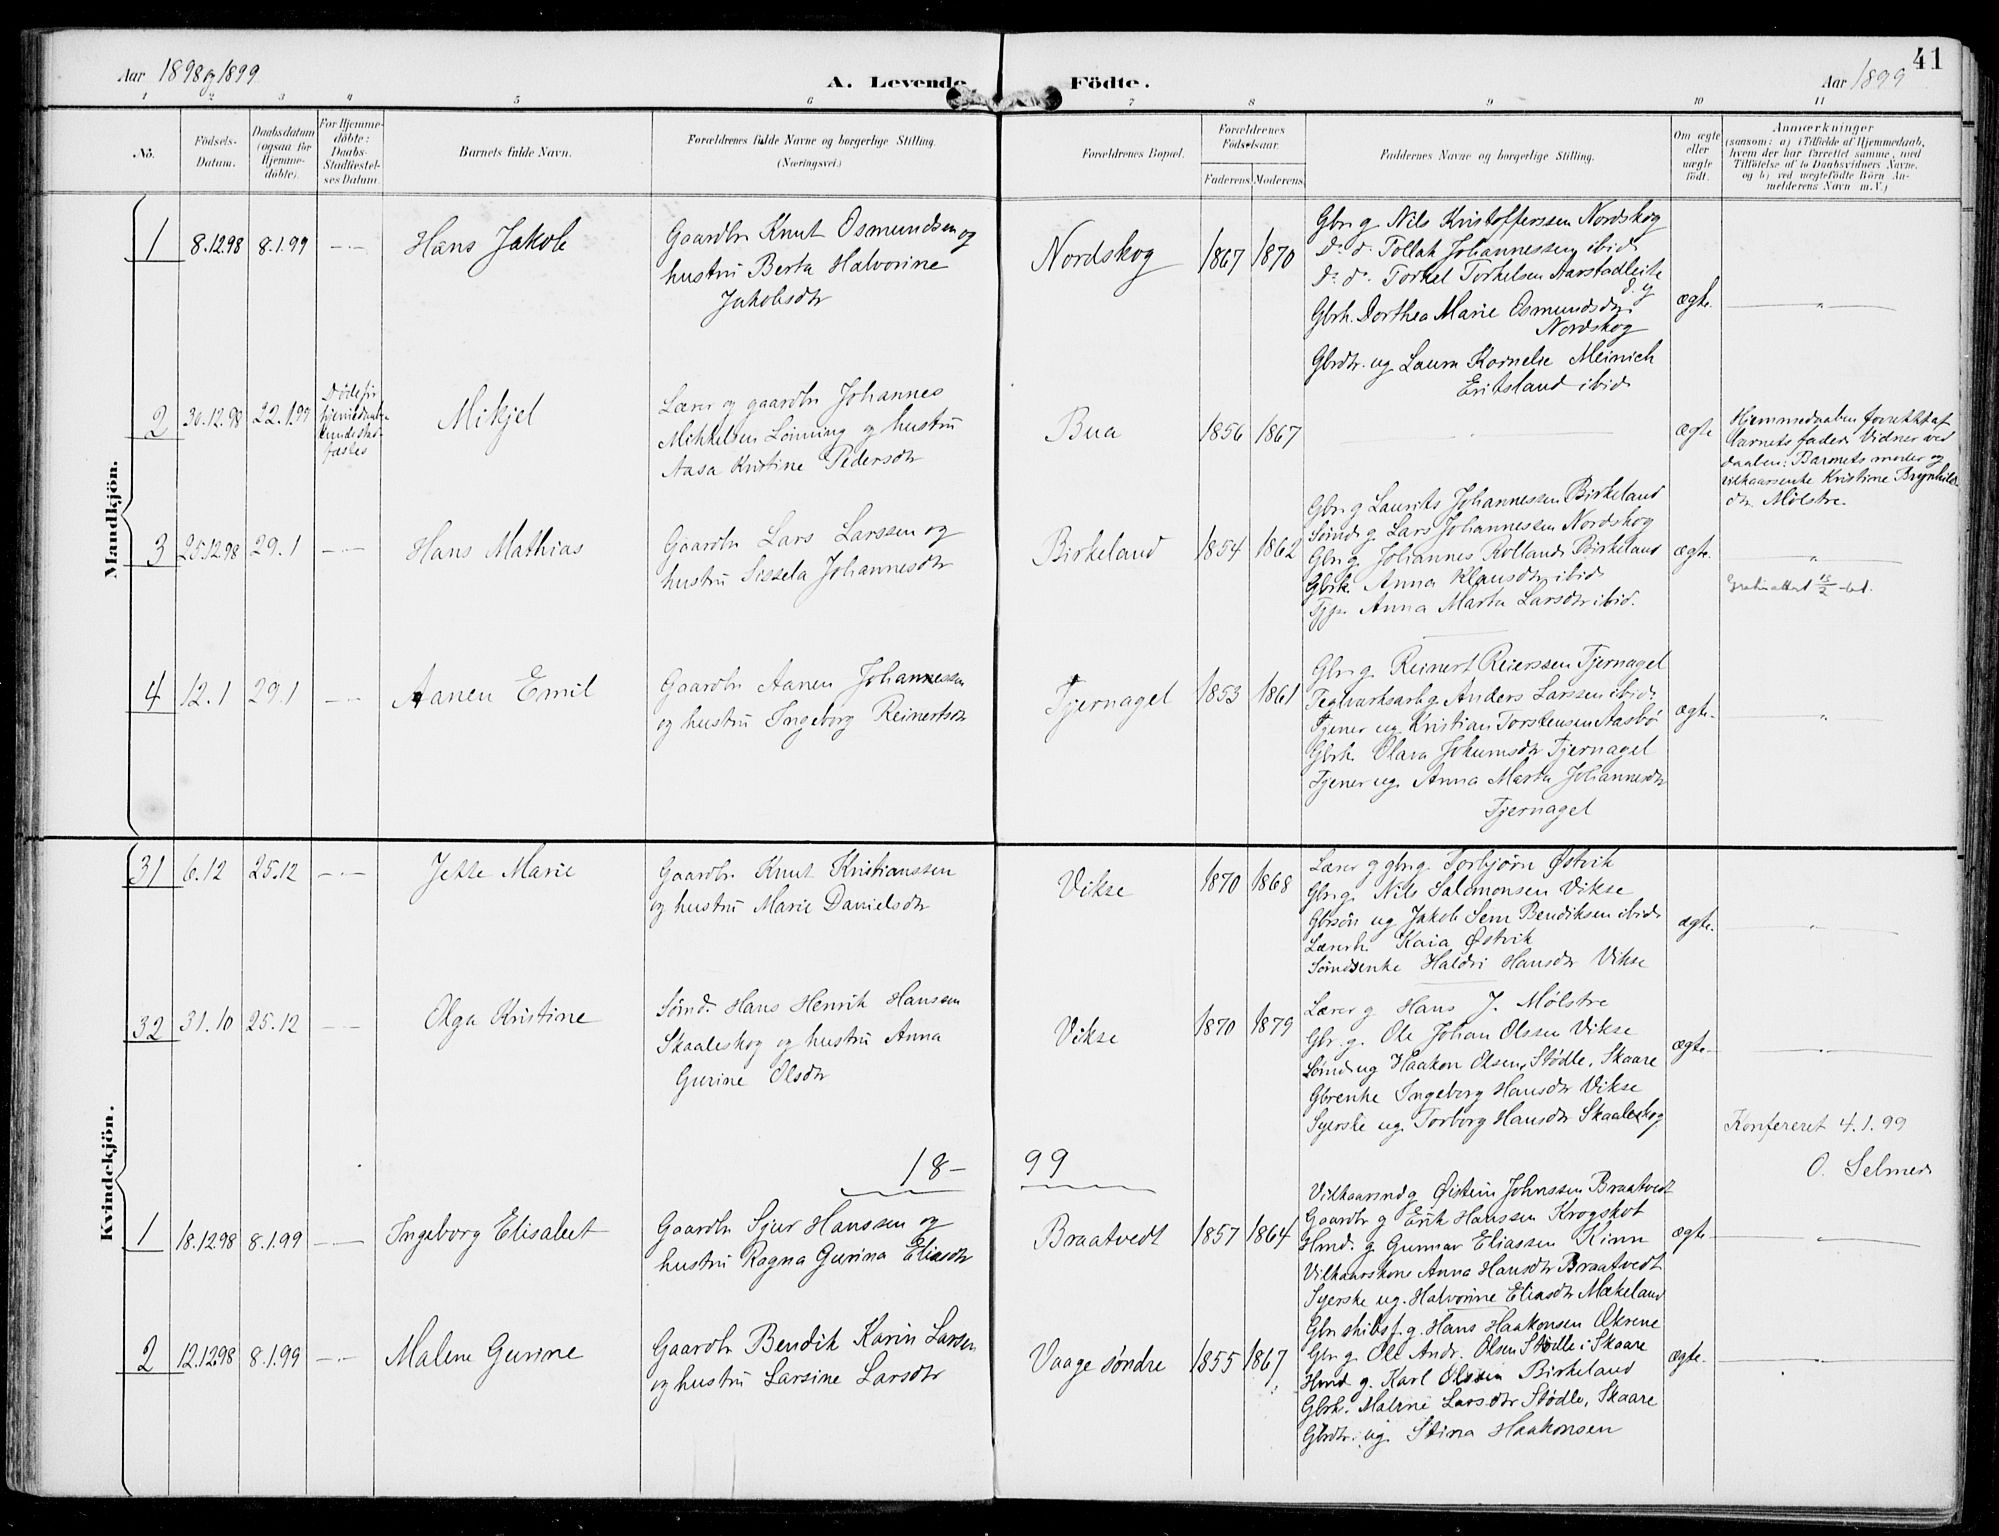 41
Aar 1898 og 1899
A. Levende Födte.
Aar 1899
1 2 3 4 5 6 7 8 9 10 11
No.
Födsels-
Datum.
Daabsdatum
(ogsaa for
Hjemme-
döbte).
For Hjemme-
döbte:
Daabs-
Stadfæstel-
ses Datum
Barnets fulde Navn.
Forældrenes fulde Navne og borgerlige Stilling.
(Næringsvei.)
Forældrenes Bopæl.
Forældrenes
Födselsaar.
Faderens. Moderens.
Faddernes Navne og borgerlige Stilling.
Om ægte
eller
uægte
födt.
Anmærkninger
(saasom: a) i Tilfælde af Hjemmedaab,
hvem der har forrettet samme, med
Tilföielse af to Daabsvidners Navne,
og b) ved uægtefödte Börn An-
melderens Navn m. V.)
Mandkjön.
1 8.12.98 8.1.99 — " — Hans Jakob
Gaardbr Knut Osmundsen og
hustru Berta Halvorine
Jakobsdtr
Nordskog 1867 1870
Gbr. g. Nils Kristofferssen Nordskog
do. do. Tollak Johannessen ibid.
do. do. Torkel Torkelsen Aarstadleite
Gbrh. Dorthea Marie Osmundsdtr.
Nordskog
Gbrdtr. ug. Laura Kornelie Meinich
Eritsland ibid.
ægte. — " —
2 30.12.98 22.1.99
Døde før
hjemmedaaben
kunde stad-
fæstes
Mikjel
Lærer og gaardbr Johannes
Mikkelsen Lönning og hustru
Aasa Kristine Pedersdtr
Bua 1856 1867 — " — ægte
Hjemmedaaben forrettet af
barnets fader. Vidner ved
daaben: Barnets moder og
vilkaarsenke Kristine Brynhilds-
dtr. Mølstre.
3 25.12.98 29.1 — " — Hans Mathias
Gaardbr Lars Larssen og
hustru Sissela Johannesdtr
Birkeland 1854 1862
Gbr. g. Laurits Johannessen Birkeland
Sømd. g. Lars Johannessen Nordskog
Gbr. g. Johannes Rolland Birkeland
Gbrk. Anna Klausdtr ibid.
Tjp. Anna Marta Larsdtr ibid.
ægte. — " —
4 12.1 29.1 — " — Aanen Emil
Gaardbr Aanen Johannessen
og hustru Ingeborg Reinertsdtr
Tjernagel 1853 1861
Gbr. g. Reinert Reierssen Tjernagel
Teglverksarb. g. Anders Larssen ibid.
Tjener ug. Kristian Torstensen Aasbö
Gbrk. Olava Johannsdtr Tjernagel
Tjener ug. Anna Marta Johannesdtr
Tjernagel
ægte. — " —
Kvindekjön.
31 6.12 25.12 — " — Jette Marie
Gaardbr. Knut Kristianssen
og hustru Marie Danielsdtr
Vikse 1870 1868
Lærer g. gbr. g. Torbjørn Østvik
Gbr. g. Nils Salomonsen Vikse
Gbrsøn ug. Jakob Sem Bendiksen ibid.
Lærerh. Kaia Østvik
Sømdsenke Haldri Hansdtr Vikse
ægte. — " —
32 31.10 25.12 — " — Olga Kristine
Sømd. Hans Henrik Hansen
Skaaleskog og hustru Anna
Gurine Olsdtr
Vikse 1870 1879
Lærer g. Hans J. Mölstre
Gbr. g. Ole Johan Olssen Vikse
Sømd. ug. Haakon Olsen, Stødle, Skaare
Gbrenke Ingeborg Hansdtr Vikse
Syerske ug. Torborg Hansdtr Skaaleskog
ægte. — " —
Konfereret 4.1.99
O. Selmer
18— 99
1 18.12.98 8.1.99 — " — Ingeborg Elisabet
Gaardbr Sjur Hanssen og
hustru Ragna Gurina Eliasdtr
Braatvedt 1857 1864
Vilkaarsmd g. Øistein Johnssen Braatvedt
Gaardbr g. Erik Hanssen Krogskot
Hmd. g. Gunnar Eliassen Kinn
Vilkaarskone Anna Hansdtr Braatvedt
Syerske ug. Halvorine Eliasdtr Mækeland
ægte. — " —
2 12.12.98 8.1.99 — " — Malene Gurine
Gaardbr Bendik Karin Larsen
og hustru Larsine Larsdtr
Vaage söndre 1855 1867
Gbr. skibsf. g. Hans Haakonsen Økrene
Gbr. g. Ole Andr. Olsen Stødle i Skaare
Hmd g. Karl Olsen Birkeland
Gbrk. Malene Larsdtr Stødle, Skaare
Gbrdtr. ug. Stina Haakonsen
ægte. — " —